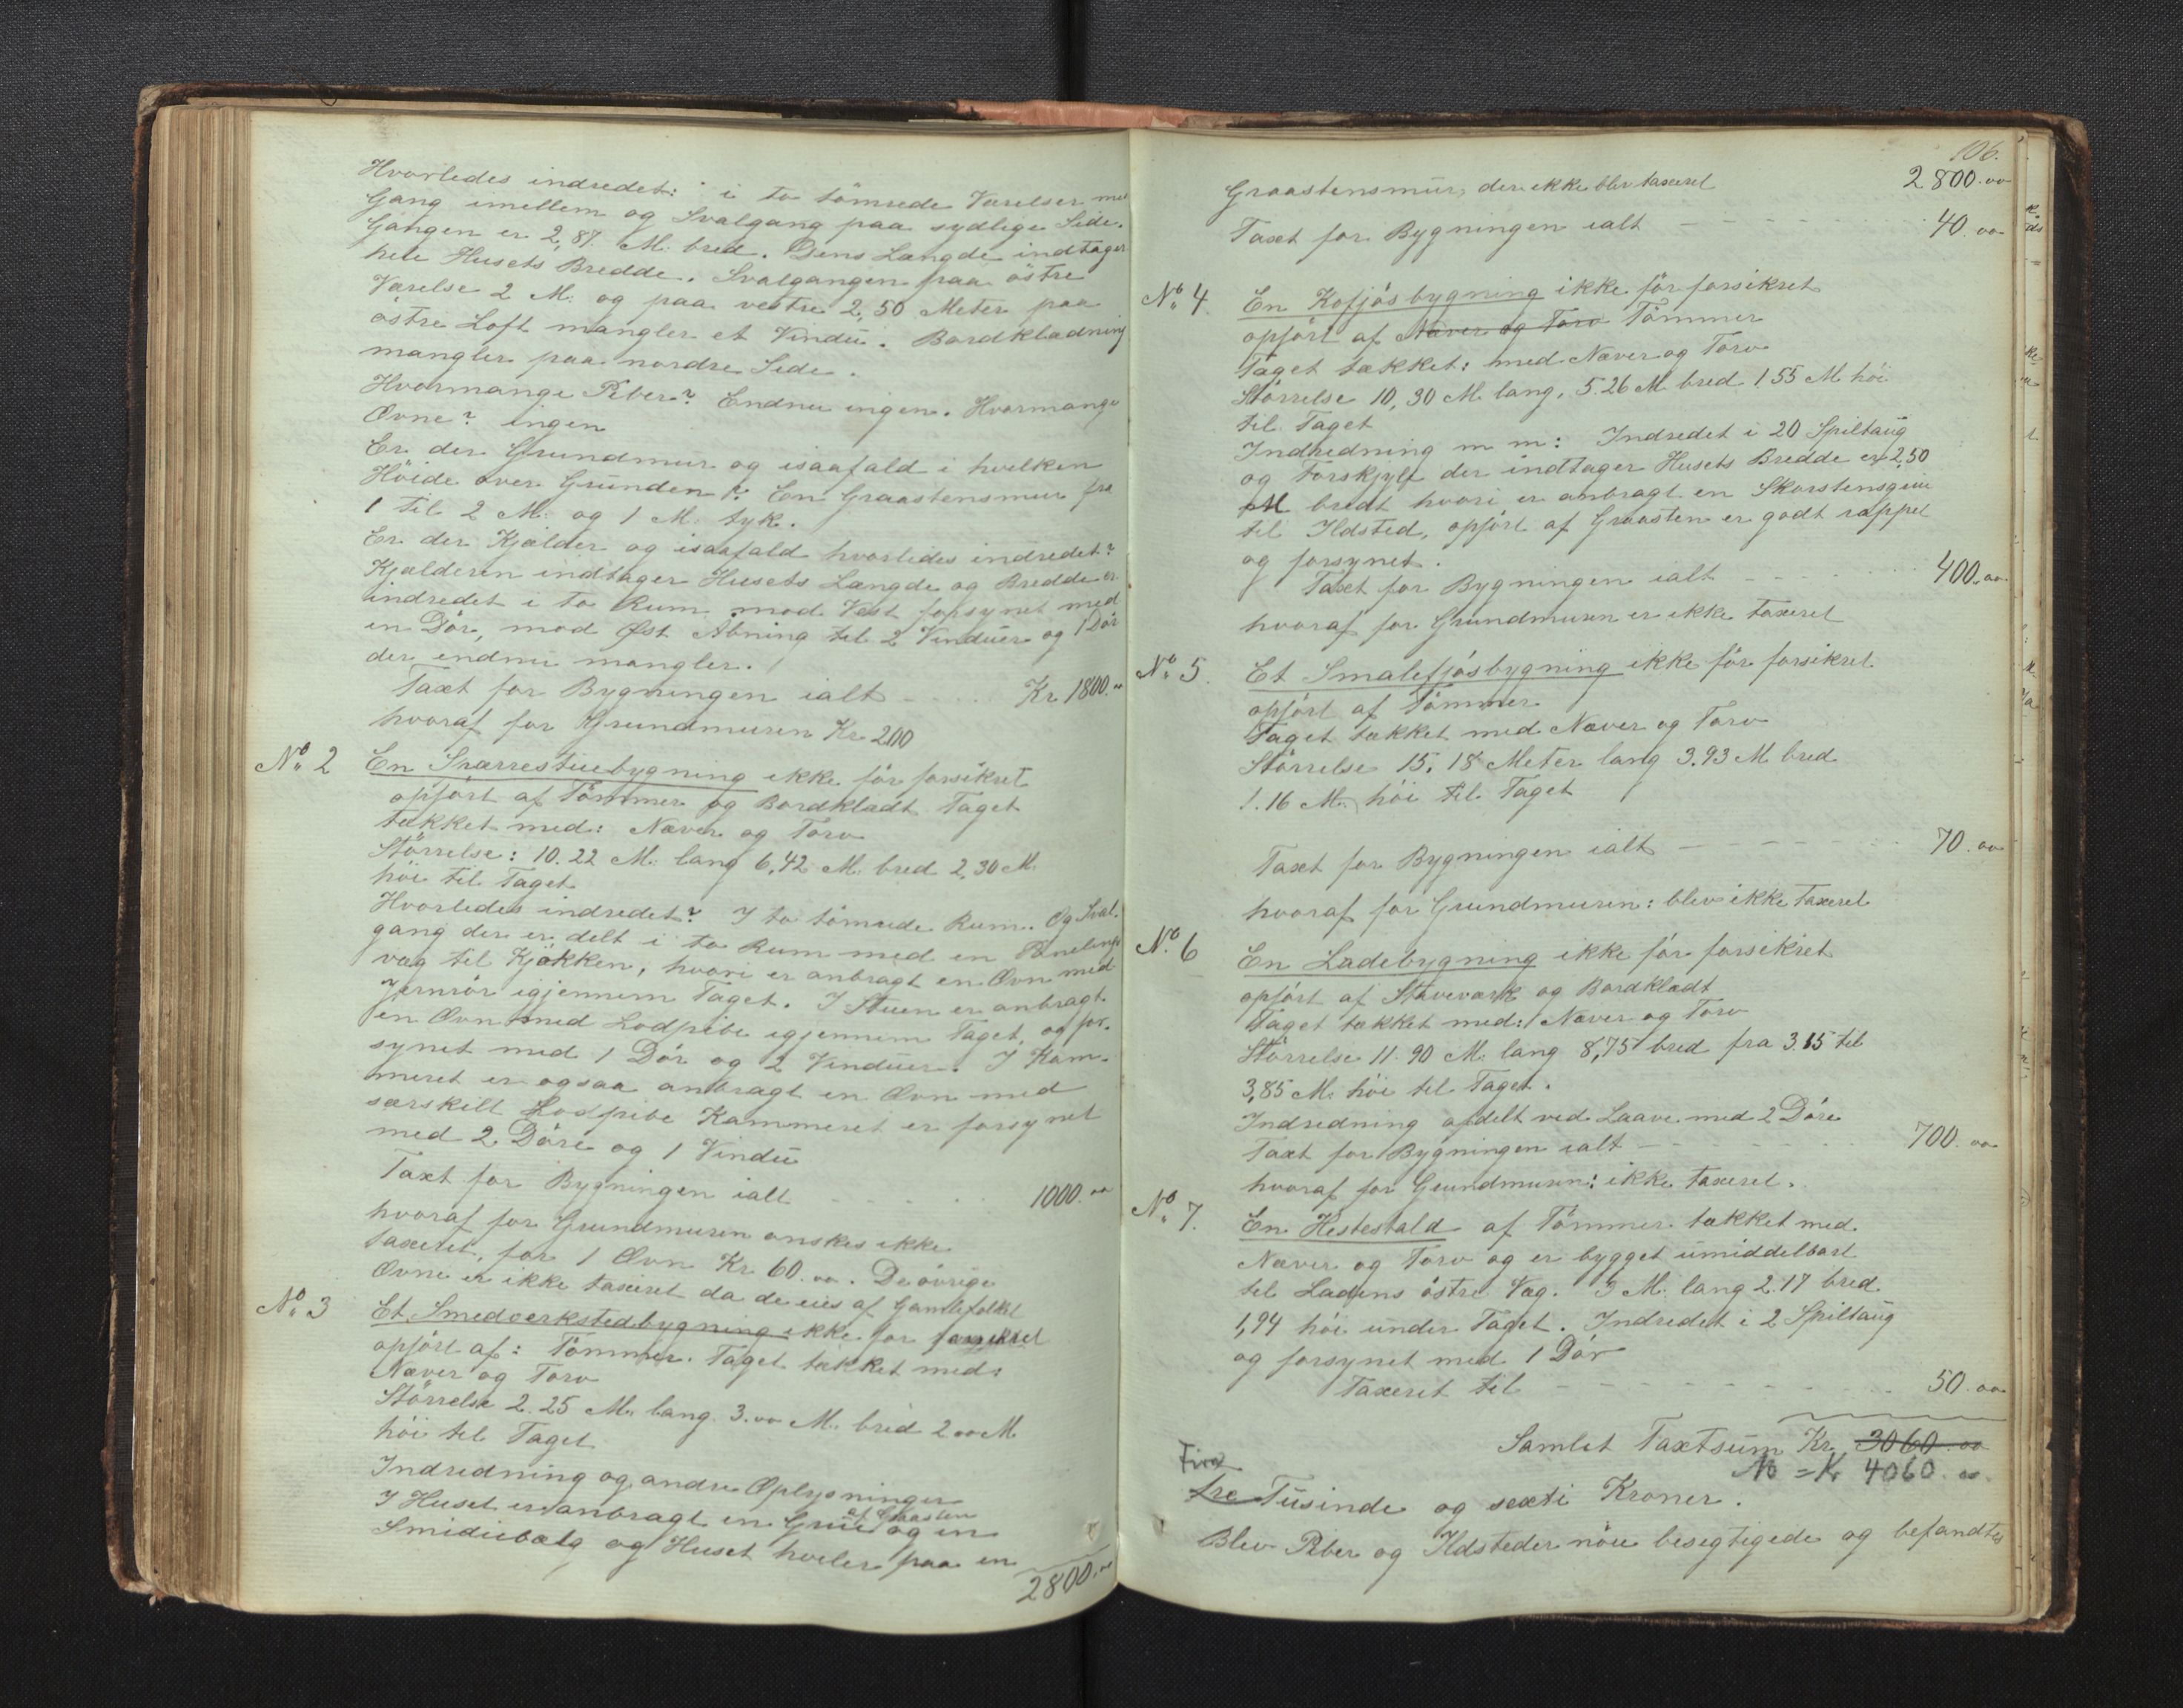 Hvorledes indredet: i to tömrede Værelser med
Gang imellem og Svalgang paa sydlige Side.
Gangen er 2,87 M. bred. Dens Længde indtager
hele Husets Bredde. Svalgangen paa östre
Værelse 2 M. og paa vestre 2,50 Meter paa
östre Loft mangler et Vindu. Bordklædning
mangler paa nordre Side.
Hvormange Piber? Endnu ingen. Hvormange
Ovne? ingen
Er der Grundmur og isaafald i hvilken
Höide over Grunden? En Graastensmur fra
1 til 2 M. og 1 M. tyk.
Er der Kjælder og isaafald hvorledes indredet?
Kjælderen indtager Husets Længde og Bredde er
indredet i to Rum mod Vest forsynet med
en Dör, mod Øst Åbning til 2 Vinduer og 1 Dör
der endnu mangler.
Taxt for Bygningen ialt - - - - Kr 1800.oo
hvoraf for Grundmuren Kr 200
No 2 En Sværrestuebygning ikke för forsikret
opfört af Tömmer og Bordklædt Taget
tækket med: Næver og Torv
Störrelse: 10.22 M. lang 6,42 M. bred 2,30 M.
höi til Taget
Hvorledes indredet? I to tömrede Rum. Og Sval-
gang der er delt i to Rum med en Panelings
væg til Kjökken, hvori er anbragt en Ovn med
Jernrör igjennem Taget. I Stuen er anbragt
en Ovn med Lodpibe igjennem Taget, og for-
synet med 1 Dör og 2 Vinduer. I Kam-
meret er ogsaa anbragt en Ovn med
særskilt Lodpibe Kammeret er forsynet
med 2 Döre og 1 Vindu
Taxt for Bygningen ialt - - - - - 1000.oo
hvoraf for Grundmuren önskes ikke
taxeret, for 1 Ovn Kr 60.oo. De övrige
Ovne er ikke taxeret da de eies af Gamlefolket
No 3 Et Smedverkstedbygning ikke för forsikret
opfört af: Tömmer. Taget tækket med:
Næver og Torv
Störrelse 2.25 M. lang 3.oo M. bred 2 oo M
höi til Taget
Indredning og andre Oplysninger
I Huset er anbragt en Grue af Graasten og en
Smidiebælg og Huset hviler paa en
2800.oo
106.
Graastensmur, der ikke blev taxeret 2800.oo
Taxt for Bygningen ialt - - - - - - 40.oo
No 4 En Kofjösbygning ikke för forsikret
opfört af Næver og Torv Tömmer
Taget tækket: med Næver og Torv
Störrelse 10,30 M. lang, 5.26 M bred 1 55 M höi
til Taget
Indredning m m: Indredet i 20 Spiltaug
og Forskjyle der indtager Husets Bredde er 2,50
M bredt hvori er anbragt en Skorstensgrue
til Ildsted, opfört af Graasten er godt rappet
og forsynet.
Taxt for Bygningen ialt - - - - - 400.oo
hvoraf for Grundmuren er ikke taxeret
No 5. Et Smalefjösbygning ikke för forsikret
opfört af Tömmer
Taget tækket med Næver og Torv
Störrelse 15.18 Meter lang 3.93 M bred
1.16 M. höi til Taget
Taxt for Bygningen ialt - - - - - - 70.oo
hvoraf for Grundmuren: blev ikke taxeret
No 6 En Ladebygning ikke för forsikret
opfört af Staveværk og Bordklædt
Taget tækket med: Næver og Torv
Störrelse 11.90 M. lang 8,75 bred fra 3.15 til
3,85 M. höi til Taget.
Indredning afdelt ved Laave med 2 Döre
Taxt for Bygningen ialt - - - - - - 700.oo
hvoraf for Grundmuren: ikke taxeret.
No 7. En Hestestald af Tömmer tækket med
Næver og Torv og er bygget umiddelbart
til Ladens östre Væg. 3 M. lang 2.17 bred
1,94 höi under Taget. Indredet i 2 Spiltaug
og forsynet med 1 Dör
Taxeret til - - - - - - - - - 50.oo
Samlet Taxtsum Kr 3060.oo
No = Kr 4060.oo
Fire
Tre Tusinde og sexti Kroner.
Blev Piber og Ildsteder nöie besegtigede og befandtes